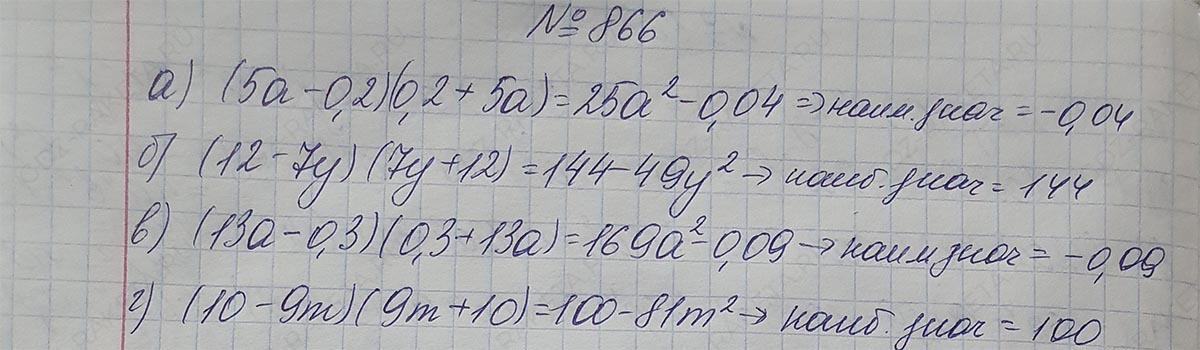 № 866
а) (5a - 0,2)(0,2 + 5a) = 25a² - 0,04 ⇒ наим. знач = -0,04
б) (12 - 7y) (7y + 12) = 144 - 49y² → наиб. знач = 144
в) (13a - 0,3) (0,3 + 13a) = 169a² - 0,09 → наим знач = -0,09
г) (10 - 9m) (9m + 10) = 100 - 81m² → наиб. знач = 100